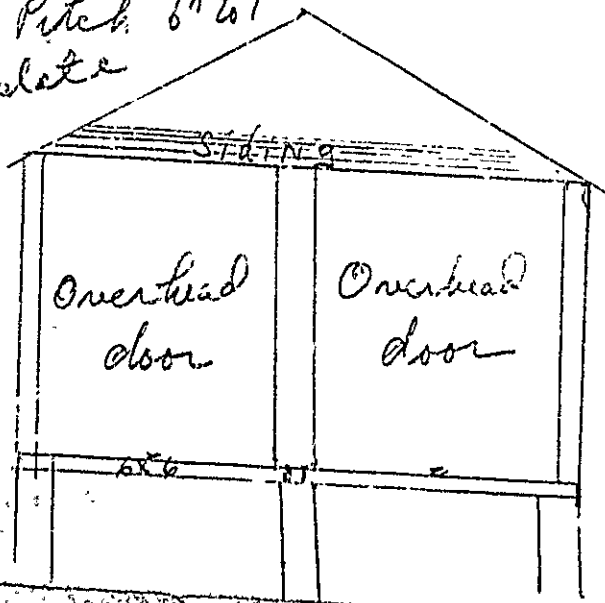 Pitch 6"
plate
Siding
Overhead
door
Overhead
door
6x6